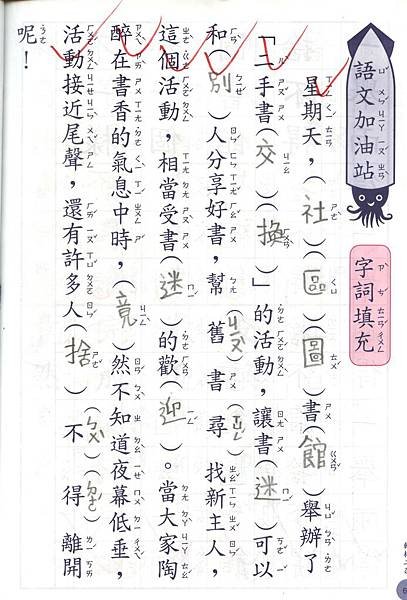 語文加油站
字詞填充
星期天，（社）（區）（圖）書（館）舉辦了
「二手書（交）（換）」的活動，讓書（迷）可以
和（別）人分享好書，幫舊（ㄐㄧㄡˋ）書尋（）找新主人，
這個活動，相當受書（迷）的歡（迎）。當大家陶
醉在書香的氣息中時，（竟）然不知道夜幕低垂，
活動接近尾聲，還有許多人（捨）不（ㄅㄨˋ）得（）離開
呢！